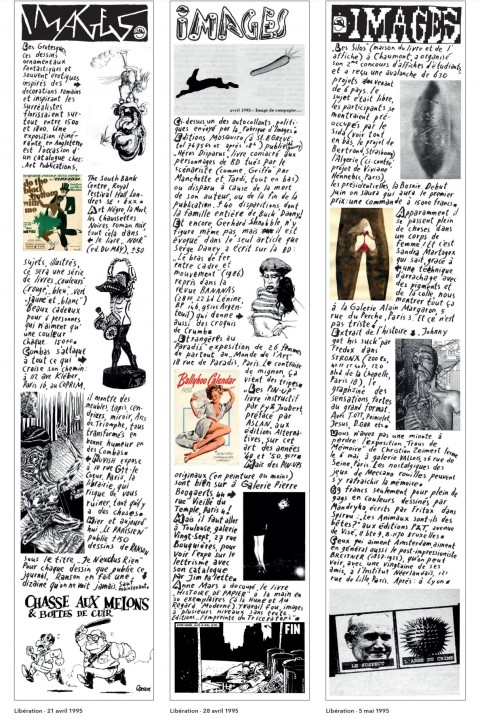 IMAGES
Des Grotesques,
ces dessins
ornementaux
fantastiques et
souvent érotiques
inspirés des
décorations romaines
et inspirant les
surréalistes
fleurissaient sur-
tout entre 1500
et 1800. Une
exposition itiné-
rante, en Angleterre
est l'occasion d'
un catalogue chez
Art Publications.
The South Bank
Centre, Royal
Festival Hall, Lon-
dres SE 1 8XX
Art Nègre, la Mort,
les Chaussettes
Noires, roman noir,
tout cela dans
"le livre NOIR"
(ed. DU MAY), 250
sujets, illustrés,
ce sera une série
de livres couleurs
(rouge, bleu, vert
jaune et blanc)
Beaux cadeaux
pour personnes
qui n'aiment qu'
une couleur
chaque. 150FF
Combas s'attaque
à tout ce qui
croise son chemin:
av. Kléber,
Paris 16, au COPRIM,
il montre des
meubles, tapis, cen-
driers, miroir, Arcs
de Triomphe, tous
transformés en
bonne humeur en
des Combas
expose
à 10 rue Git-le
Cœur, Paris, la
Librairie, qui
risque de vous
ruiner, tout qu'il y
a des choses
Hier et aujourd'
hui LE PARISIEN
publie 250
dessins de RANSON
sous le titre "Je N'exclus Rien"
Pour chaque dessin que publie ce
journal, Ranson en fait une
dizaine qu'on voit jamais
CHASSE AUX MELONS
& BOITES DE CUIR
Libération - 21 avril 1995
IMAGES
avril 1995 - Image de campagne...
Ci-dessus, un des autocollants politi-
ques envoyé par la Fabrique d'Images
Editions Mosquito (à ST. EGREVE,
publient
Héros Disparus, livre consacré aux
personnages de BD tués par le
scénariste (comme Griffu par
Manchette et Tardi, tout en bas)
ou disparu à cause de la mort
de son auteur, ou de la fin de la
publication. 60 disparitions dont
la famille entière de Buck Danny!
Et encore Gerhard Shnobble n'y
figure même pas mais il est
évoqué dans le seul article que
Serge Daney a écrit sur la BD:
Le bras de fer
entre cadre et
mouvement (1986)
repris dans la
revue BANANAS
qui donne
aussi des croquis
de Crumb
"Etrangères au
Paradis" exposition de 26 femmes
de partout au "Monde de l'Art"
18 rue de Paradis, Paris. Le contraire
de mignon, ça
vient des tripes
"Des PIN-UP"
livre instructif
par Joubert,
préface par
ASLAN, aux
édition Alterna-
tives, sur cet
art des années
40 et 50
Mais des PIN-UPS
originaux (en peinture au moins)
sont bien sûr à Galerie Pierre
Bogaerts
rue Vieille du
Temple, Paris 4!
Mais il faut aller
à Toulouse, galerie
Vingt-Sept, 27 rue
Bouquières, pour
voir l'expo sur le
lettrisme avec
son catalogue
par Jim Palette
Anne Mars a découpé le livre
"HISTOIRE DE PAPIER" à la main en
10 exemplaires (à La Hune et Au
Regard Moderne). Travail fou, images
à plusieurs niveaux sans texte.
Editions "l'empreinte du Triceratops"
Ballyhoo Calendar
FIN
Libération - 28 avril 1995
IMAGES
Les Silos (maison du livre et de l'
affiche) à Chaumont, a organisé
son 2ème concours d'affiches d'étudiants,
et a reçu une avalanche de 630
projets venant
de 6 pays. Le
sujet était libre,
les participants se
montraient pré-
occupés par le
sida (voir tout
en bas, le projet de
Bertrand, Strasbourg)
l'Algérie (ci-contre,
projet de Viviane
Henneke, Paris)
les présidentielles, la Bosnie. Début
juin on saura qui aura le premier
prix: une commande à 15000 francs.
Apparamment il
se passent plein
de choses dans
un corps de
femme! Et c'est
Sandra Martagex
qui sait, grâce à
une technique
d'arrachage avec
des pigments et
de la colle, nous
montrer tout ça
à la Galerie Alain Margaron, 5
rue du Perche, Paris 3. Et ce n'est
pas triste!
Extrait de l'histoire "Johnny
got his suck" par
Fredox dans
STRONX
Paris 18), le
graphzine des
sensations fortes
du grand format,
Vous n'avez pas une minute à
perdre! L'exposition "Trous de
Mémoire" de Christian Zeimert ferme
le 6 mai à galerie VALLOIS, 38 rue de
Seine, Paris. Les nostalgiques des
jeux de Meccano rouillés peuvent
s'y rafraîchir la mémoire
francs seulement pour plein de
gags en couleurs dessinés par
Mandryka écrits par Fritax dans
Spirou. "Les Animaux sont-ils des
bêtes?" aux éditions P&T, avenue
de Visé, B-1170 Bruxelles
Ceux qui aiment Amsterdam aiment
en général aussi le post-impressioniste
BREITNER (1857-1923), qu'on peut
voir, avec une vingtaine de ses
amis, à l'Institut Néerlandais, 121
rue de Lille Paris. Après: à Lyon
LE SUSPECT
L'ARME DU CRIME
Libération - 5 mai 1995